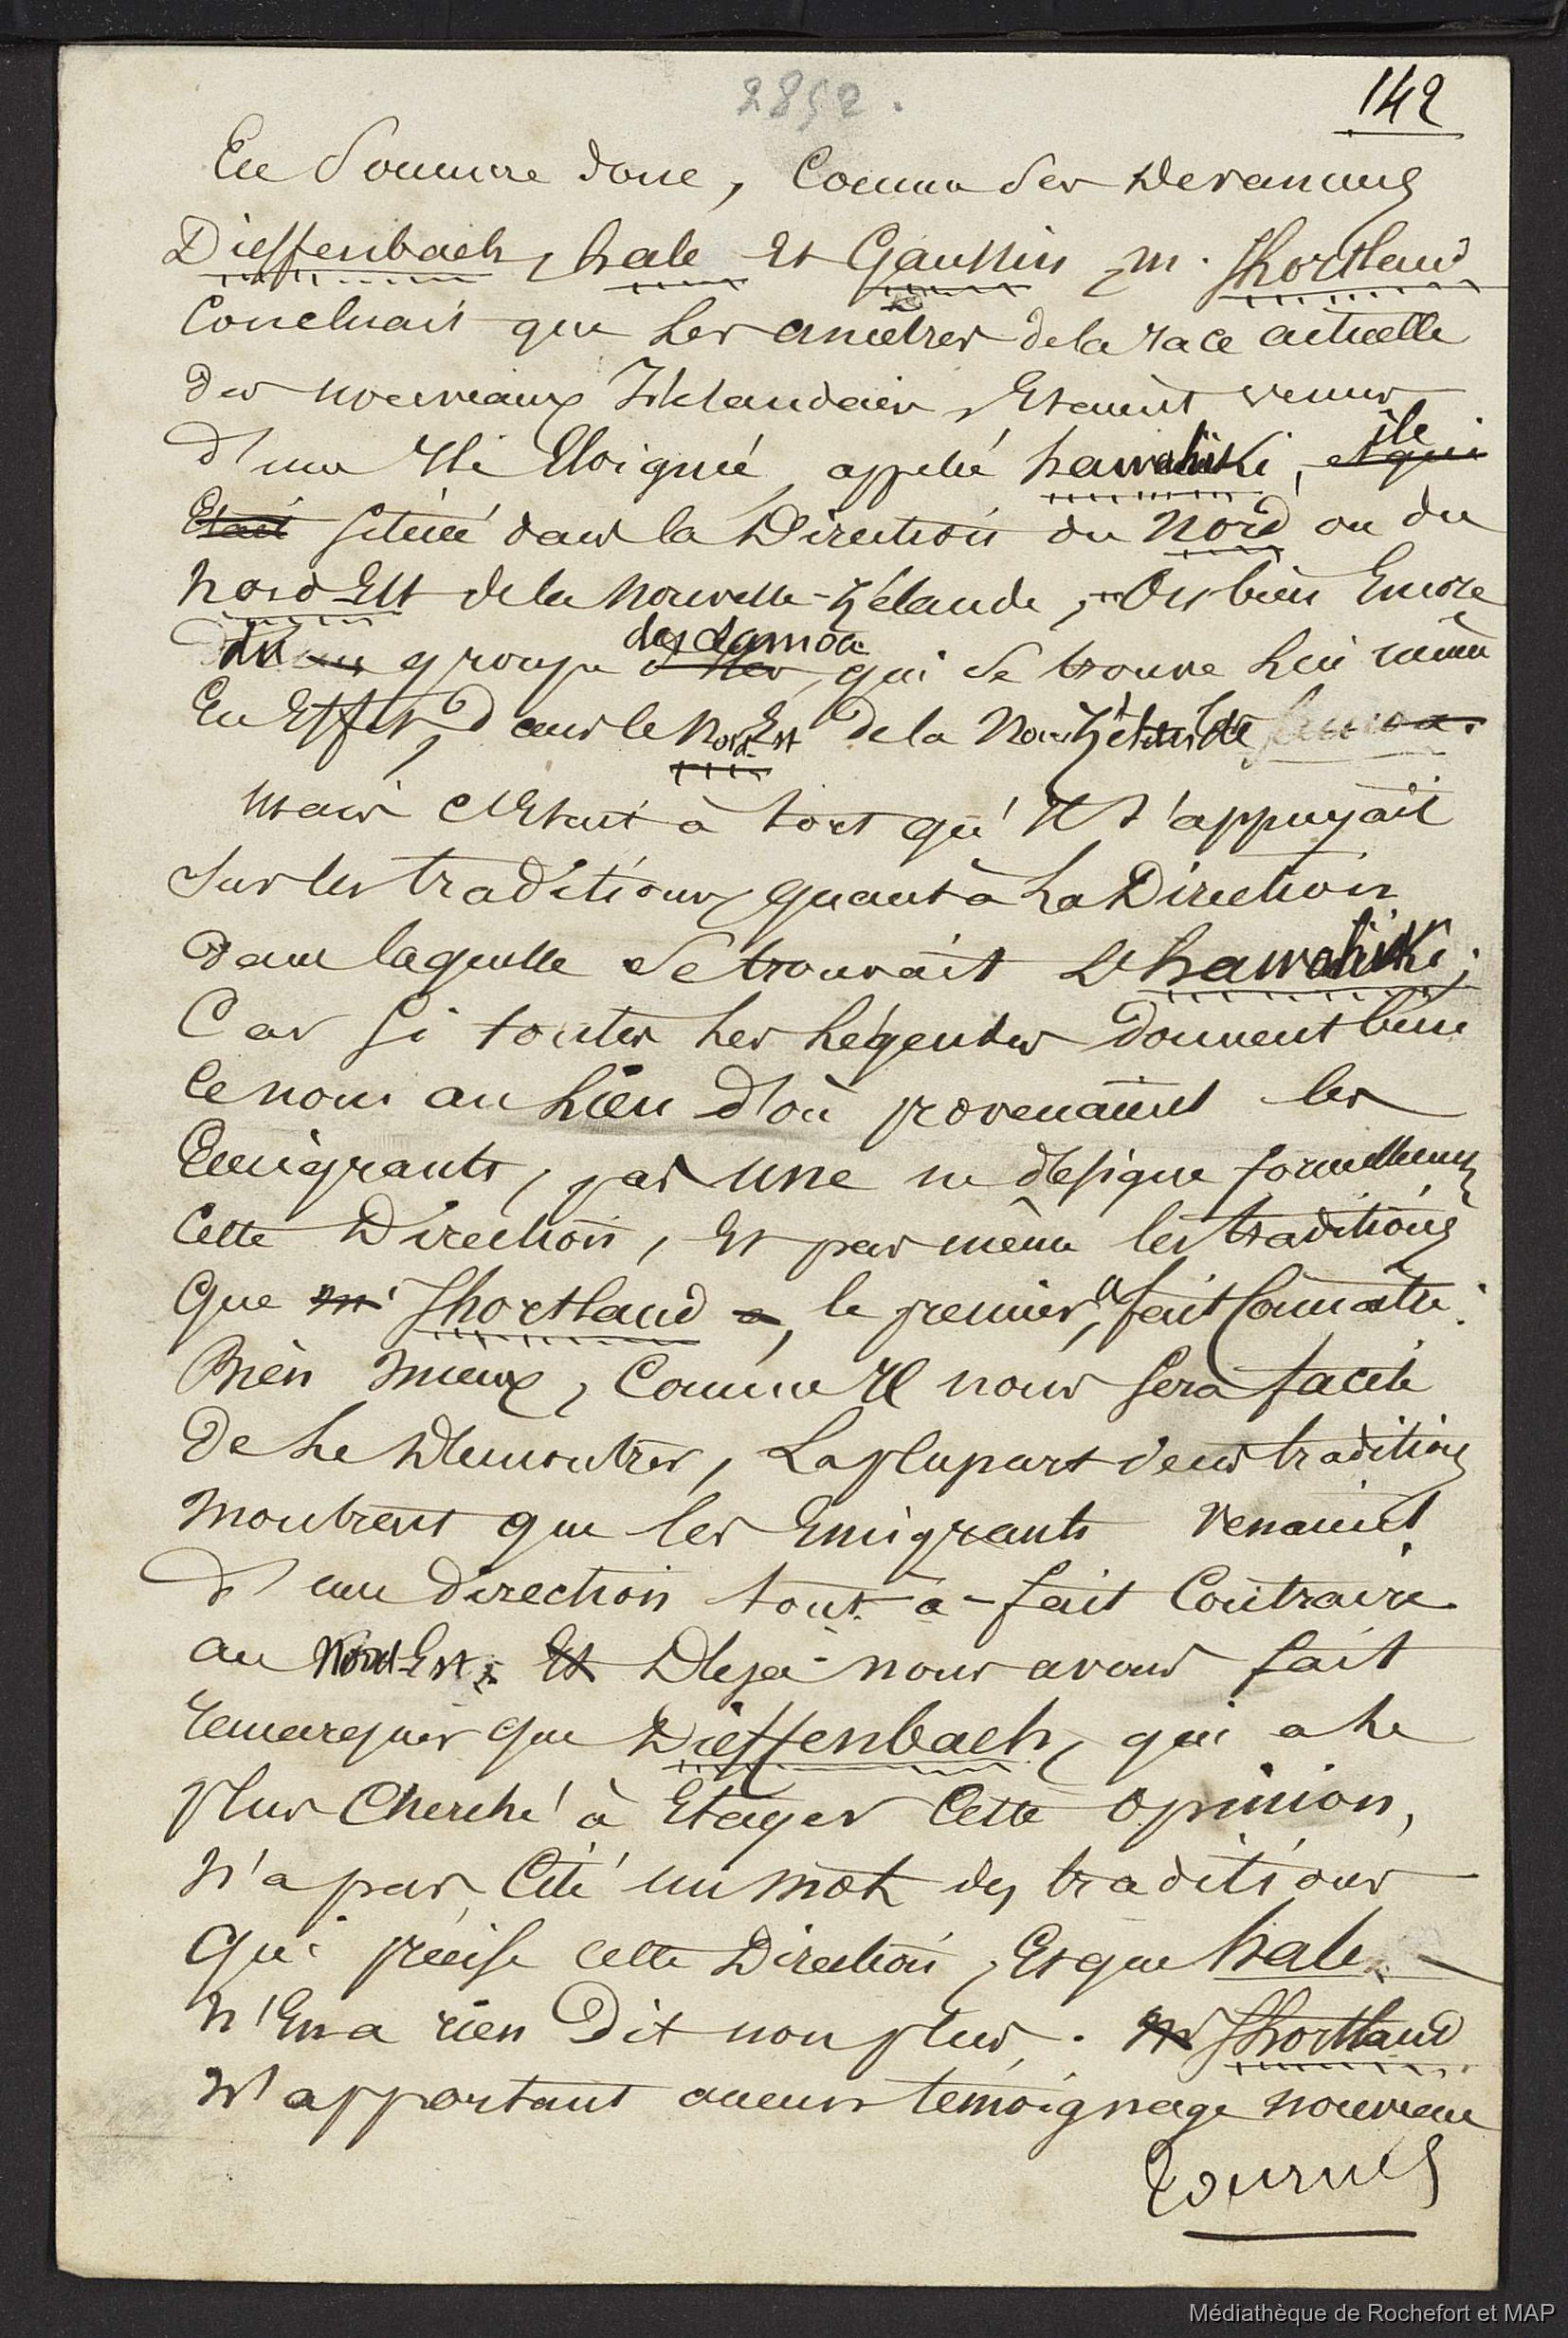 2852.
142
En Somme donc, Comme Ses Devanciers
Dieffenbach, hale Et Gaussin, M. Shortland
Concluait que Les ancêtres de la race actuelle
des nouveaux Zélandais, Etaient venus
d'une Ile Eloignée, appelée hawahiki, et qui île
Etait Située dans la Direction du Nord ou du
Nord Est de la Nouvelle-Zélande, Ou bien Encore
du groupe d'Iles des Samoa, qui Se trouve Lui même
En Effet, dans le Nord-Est de la Nouv. Zélande Samoa.
Mais C'Etait à tort qu'Il S'appuyait
Sur les traditions quant à La Direction
dans laquelle Se trouvait L'hawahiki;
Car Si toutes Les Légendes Donnent bien
Ce nom au Lieu D'où provenaient les
Emigrants, pas une ne désigne formellement
Cette Direction, Et pas même les traditions
Que Mr Shortland a, le premier, a fait Connaître.
Bien Mieux, Comme Il nous Sera facile
De Le Démontrer, La plupart de ces traditions
Montrent que les Emigrants Venaient
D'une Direction tout-à-fait Contraire
au Nord-Est; Et Déjà nous avons fait
remarquer Que Dieffenbach, qui a Le
plus Cherché à Etayer Cette Opinion,
N'a pas Cité un Mot des traditions
Qui précise Cette Direction, Et que hale
N'En a rien Dit non plus. Mr Shortland
N'apportant aucun témoignage nouveau
Tournez
Médiathèque de Rochefort et MAP